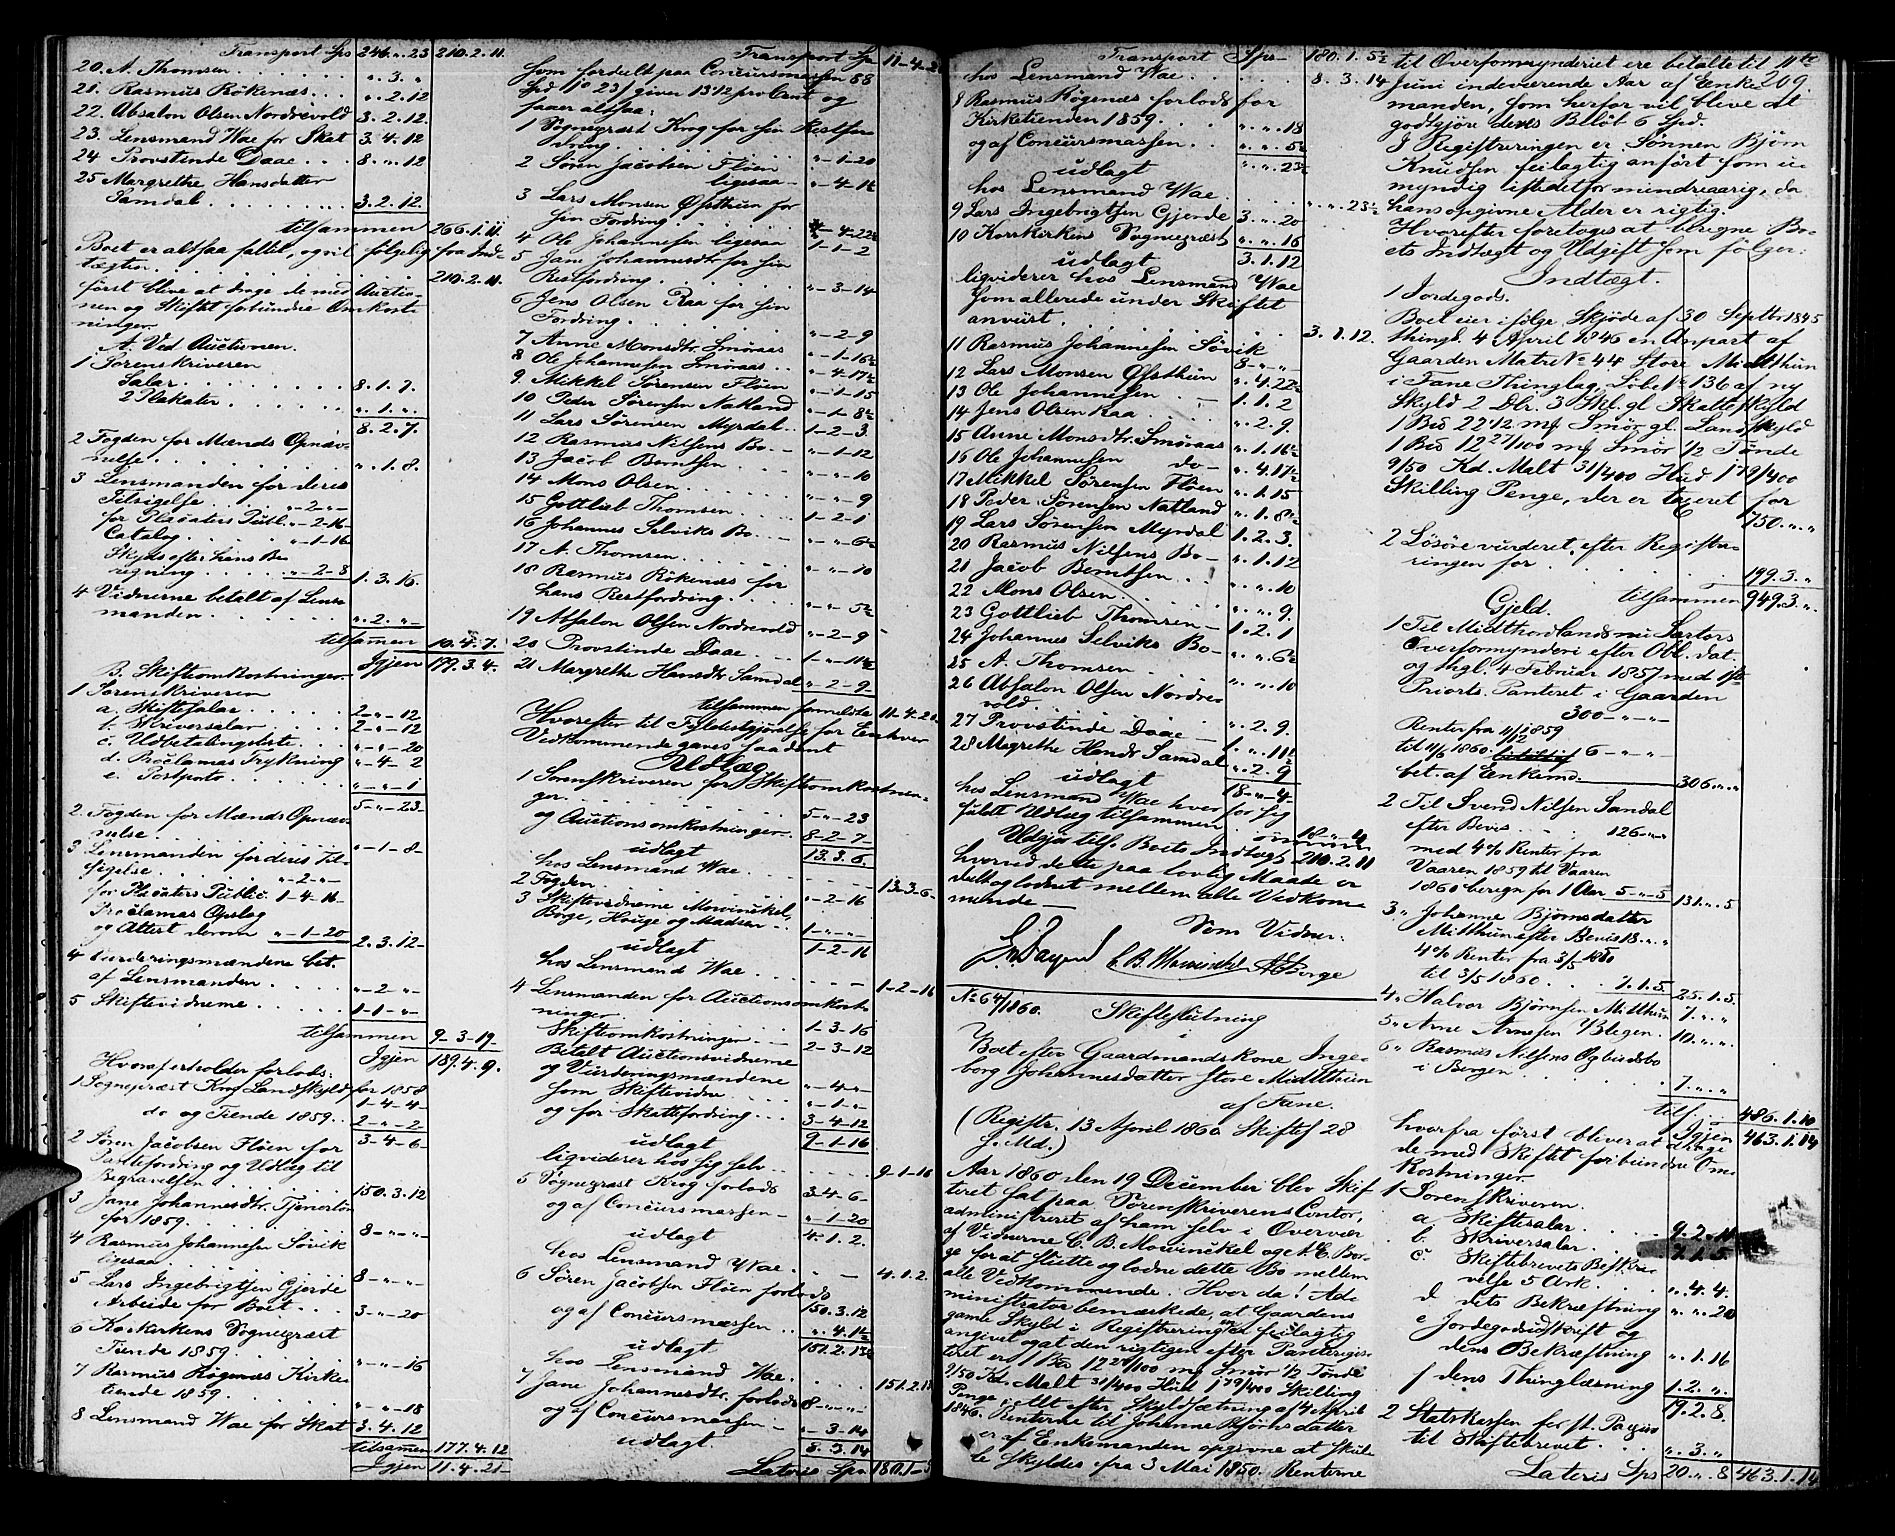 Transport Sps 246 " 23 210. 2. 11.
20. A. Thomsen . . . " . 3. "
21. Rasmus Rökenæs . . " . 2. 12
22. Absalon Olsen Nordrevold 3. 2. 12.
23. Lensmand Wae for Skat 3. 4. 12
24 Provstinde Daae . . 8. ". 12
25 Margrethe Hansdatter
Samdal . . . 3. 2. 12.
tilsammen 266. 1. 11.
Boet er altsaa fallit, og vil følgelig fra Ind-
tægten . . . 210. 2. 11.
først blive at drage de med Auctio-
nen og Skiftet forbundne Omkost-
ninger.
A. Ved Auctionen.
1 Sorenskriveren
Salar . . . 8. 1. 7.
2 Plakater . . . ". 1. ".
8. 2. 7.
2 Fogden for Mænds Opnæv-
nelse . . . ". 1. 8.
3 Lensmanden for deres
Tilsigelse " - 2 - " -
for Placaters Publ. " - 2 - 16 -
Catalog . . " - 1 - 16
Skyds efter hans Be-
regning . . " - 2 - 8 1. 3. 16.
4 Vidnerne betalt af Lens-
manden . . . ". 2. " -
tilsamen 10. 4. 7.
Igjen 199. 3. 4.
B. Skiftomkostninger.
1 Sorenskriveren
a. Skiftesalar . . . 2 - " - 12
b. Skriversalar . . . 2 - " - 12
c. Udbetalingsliste . . " - " - 20
d. Proclamas Trykning " - 4 - 2
e. Postporto . . . " - " - 1
5 - " - 23 -
2. Fogden for Mænds Opnæv-
nelse . . . " - 1 - 8 -
3 Lensmanden for deres Til-
sigelse . . " - 2 - " -
for Placaters Public. 1 - 4 - 16 -
Proclamas Opslag
og Attest derom " - 1 - 20 2. 3. 12 -
4 Vurderingsmændene bet.
af Lensmanden . . . " - 2 - " -
5 Skiftevidnerne . . . 1 - 1 - " -
tilsammen 9 - 3 - 19 -
Igjen 189. 4. 9.
Hvoraf erholder forlods:
1 Sognepræst Krog Landskyld for 1858
1 - 4 - 4 -
do og Tiende 1859 . . 2 - " - 2
3 - 4 - 6 -
2 Sören Jacobsen Flöen for
Pantefordring og Udlæg til
Begravelsen . . . 150. 3. 12
3 Jane Johannesdtr. Tjenerlön
for 1859 . . . 8 - " - " -
4 Rasmus Johannesen Sövik
ligesaa . . . 8 - " - " -
5 Lars Ingebrigtsen Gjerde
Arbeide for Boet . . . 3 - " - 20
6 Korskirkens Sognepræst
Tiende 1859 . . . " - " - 16
7 Rasmus Rögenæs Kirke-
tiende 1859 . . . " - " - 18
8 Lensmand Wae for Skat 3. 4. 12
tilsamen 177. 4. 12
Igjen 11. 4. 21 -
Transport Sps 11 - 4 - 21
som fordelt paa Concursmassen 88
Spd 1 " 23 / giver 13 1/2 procent og
faaer altsaa:
1 Sognepræst Krog for sin Restfor-
dring . . . " - 1 - 20
2 Sören Jacobsen Flöen
ligesaa - " - 4 - 1 1/2
3 Lars Monsen Øfsthun for
sin Fordring . . . " - 4 - 22 1/2
4 Ole Johannesen ligesaa 1 - 1 - 2
5 Jane Johannesdtr. for sin
Restfordring . . . " - 3 - 14
6 Jens Olsen Raa for sin
Fordring . . . " - 2 - 9
7 Anne Monsdtr. Smöraas " - 1 - 16 1/2
8 Ole Johannesen Smöraas . . " - 4 - 17 1/2
9. Mikkel Sörensen Flöen " - 1 - 15
10 Peder Sörensen Natland " - 1 - 8 1/2
11 Lars Sörensen Myrdal . . 1 - 2 - 3.
12 Rasmus Nilsens Bo . - " - 1 - 12
13 Jacob Berntsen . . . " - " - 10
14 Mons Olsen . . . " - " - 9
15 Gottlieb Thomsen . . . 1 - 2 - 1
16 Johannes Selviks Bo . . " - " - 6 1/2
17 A. Thomsen . . . " - " - 10
18 Rasmus Rökenæs for
hans Restfordring . . . " - " - 5 1/2
19 Absalon Olsen Nordrevold " - 2 - 9
20 Provstinde Daae . . . 1 - " - 11 1/2
21 Margrethe Hansdtr. Samdal " - 2 - 9
tilsammen 11 - 4 - 21
Hvorefter til Fyldestgjørelse for Enhver
Vedkommende gaves saadant
Udlæg
1 Sorenskriveren for Skiftomkostnin-
ger . . . 5 - " - 23
og Auctionsomkostninger . 8 - 2 - 7
udlagt 13. 3. 6.
hos Lensmand Wae . . . 13 - 3 - 6 -
2 Fogden . . . " - 2 - 16
3 Skiftevidnerne Mowinckel,
Borge, Houge og Madsen . . 1 - " - " -
udlagt 1 - 2 - 16
hos Lensmand Wae . . . 1 - 2 - 16
4 Lensmanden for Auctionsomkost-
ninger . . . 1 - 3 - 16
Skiftomkostninger . . . 2 - 3 - 12
Betalt Auctionsvidnerne
og Vurderingsmændene " - 4 - "
som Skiftevidne . . . " - 1 - "
og for Skattefordring . . . 3 - 4 - 12
udlagt 9 - 1 - 16
liqviderer hos sig selv . . . 9 - 1 - 16
5 Sognepræst Krog forlods 3 - 4 - 6 -
og af Concursmassen - " - 1 - 20
udlagt 4. 1. 2.
hos Lensmand Wae . . . 4. 1. 2.
6 Sören Jacobsen Flöen forlods
150. 3. 12
og af Concursmassen . . ". 4. 1 1/2
udlagt 151. 2. 13 1/2
hos Lensmand Wae . . . 151. 2. 13
7 Jane Johannesdtr. forlods 8 - " - " -
og af Concursmassen - " - 3 - 14
udlagt 8. 3. 14
Lateris Sps 180. 1 - 5
Transport Sps 180. 1. 5 1/2
hos Lensmand Wae . . . 8. 3. 14
8 Rasmus Rögenæs forlods for
Kirketienden 1859 . . . ". ". 18
og af Concursmassen . . ". ". 5 1/2
udlagt ". ". 23 1/2
hos Lensmand Wae . . . " " . 23 1/2
9 Lars Ingebrigtsen Gjerde 3. ". 20
10 Korskirkens Sognepræst ". ". 16
udlagt 3. 1. 12
liqviderer hos Lensmand Wae
som allerede under Skiftet
anviist . . . 3. 1. 12.
11 Rasmus Johannesen Sövik
8 - " - " -
12 Lars Monsen Øfsthun ". 4. 22 1/2
13 Ole Johannesen . . - 1. 1. 2
14 Jens Olsen Raa . . . ". 2. 9.
15 Anne Monsdtr. Smöraas ". 1. 16 1/2
16 Ole Johannesen do - ". 4. 17 1/2
17 Mikkel Sörensen Flöen ". 1. 15
18 Peder Sörensen Natland ". 1. 8 1/2
19 Lars Sörensen Myrdal 1. 2. 3.
20 Rasmus Nilsens Bo - ". 1. 12
21 Jacob Berntsen . . . ". ". 10
22 Mons Olsen . . . ". ". 9.
23 Gottlieb Thomsen - 1. 2. 1
24 Johannes Selviks Bo - ". ". 6 1/2
25 A. Thomsen . . . ". ". 10
26 Absalon Olsen Nordre-
vold . . . ". 2. 9.
27 Provstinde Daae - 1. ". 11 1/2
28 Magrethe Hansdr. Samdal ". 2. 9
udlagt 18 - " - 4 -
hos Lensmand Wae hver for sig
fuldt Udlæg tilsammen 18 - " - 4
Udgjør tils. Boets Indtægt 210. 2. 11
hvorved dette paa lovlig Maade er
delt og loddet mellem alle Vedkom-
mende -
Som Vidner:
C. B. Mowinckel A C Borge
No 64/1860. Skifteslutning
i
Boet efter Gaardmandskone Inge-
borg Johannesdatter Store Midtthun
af Fane.
(Registr. 13 April 1860 Skiftes 28
s. Md.)
Aar 1860 den 19 December blev Skif-
teret sat paa Sörenskriverens Contor,
administreret af ham selv i Overvær
af Vidnerne C. B. Mowinckel og A. C. Bor-
ge for at slutte og lodne dette Bo mellem
alle Vedkommende. Hvor da: Ad-
ministrator bemærkede, at Gaardens
gamle Skyld i Registreringen er feilagtig
angivet og at den rigtigen efter Panteregis-
teret er 1 Bd 12 27/100 m{ Smör 1/2 Tönde
9/50 Kd. Malt 31/400 Hud 1 79/400 Skilling
Penge, alt efter Skyldsætning af 4 April
1846. Renterne til Johanne Bjørnsdatter
er af Enkemanden opgivne at skul-
le skyldes fra 3 Mai 1850. Renterne
til Overformynderiet ere betalte til 11te
Juni indeværende Aar af Enke- 209.
manden, som herfor vil blive at
godtgjöre deres Belöb 6 Spd.
I Registreringen er Sönnen Bjørn
Knudsen feilagtig anfört som u-
myndig istedetfor mindreaarig, da
hans opgivne Alder er rigtig.
Hvorefter foretoges at beregne Bo-
ets Indtægt og Udgift som følger:
Indtægt.
1 Jordegods.
Boet eier ifølge Skjøde af 30 Septbr 1845
thingl. 4 April 1846 en Anpart af
Gaarden Matr. No 44 Store Midtthun
i Fane Thinglag, Löbe No 136 af ny
Skyld 2 Dlr. 3 Skl. gl. Skatteskyld
1 Bd 22 1/2 m{ Smör gl. Landskyld
1 Bd 12 27/100 m{ Smör 1/2 Tönde
9/50 Kd. Malt 31/400 Hud 1 79/400
Skilling Penge, der er taxeret for
750. ". "
2 Lösöre vurderet efter Registre-
ringen for . . . 199. 3. "
tilsammen 949. 3. ".
Gjeld.
1 Til Midthordlands nu Sartors
Overformynderi efter Obl. dat.
og thgl. 4 Februar 1857 med 1ste
Priorts. Panteret i Gaarden
300 - " - " -
Renter fra 11/12 1859
til 11/6 1860. 6 - " - " -
bet. af Enkemd. 306. ". "
2 Til Svend Nilsen Sandal
efter Bevis . . . 126 - " - "
med 4% Renter fra
Vaaren 1859 til Vaaren
1860 beregn. for 1 Aar 5 - " - 5 131. ". 5
3 " Johanne Bjørnsdatter
Midtthun efter Bevis 18. ". "
4% Renter fra 3/5 1850
til 3/5 1860 . . . 7. 1. 5. 25. 1. 5.
4 " Halvor Bjørnsen Midtthun 7. ". "
5 " Arne Arnesen Yblegen . 10. ". "
6 " Rasmus Nilsens Opbudsbo
i Bergen . . . 7. ". "
tils. . . 486. 1. 10
Igjen 463. 1. 14
hvorfra først bliver at drage
de med Skiftet forbundne Om-
kostninger.
1 Sorenskriveren.
a Skiftesalar . . . 9. 2. 11
b. Skriversalar . . . 7. 1. 5
c Skiftebrevets Beskri-
velse 5 Ark . . . ". 4. 4.
d dets Bekræftning ". ". 20
e Jordegodsudskrift og
dens Bekræftning ". 1. 16
f dens Thinglæsning 1. 2. ".
19. 2. 8.
2 Statskassen for st. Papir
til Skiftebrevet . . . ". 3. "
Lateris Sps 20. ". 8 463. 1. 14